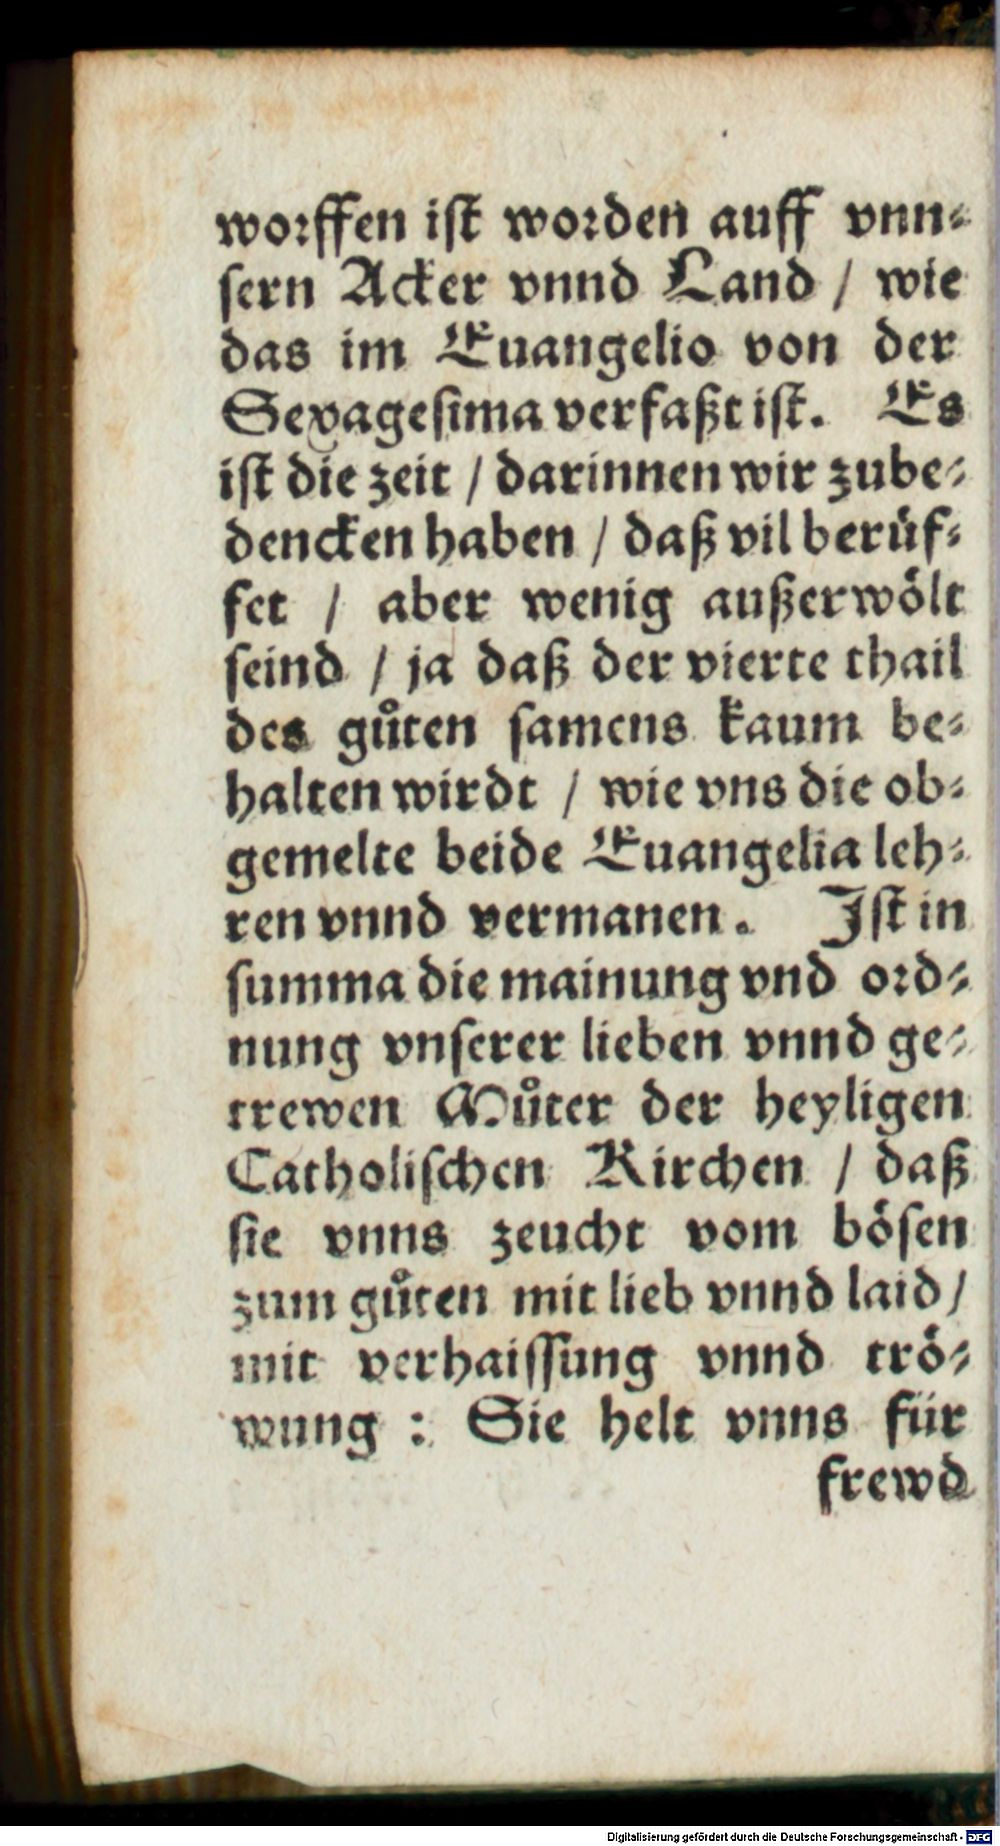 worffen iſt worden auff vnn⸗
ſern Acker vnnd Land / wie
das im Euangelio von der
Sexageſima verfaßt iſt. Es
iſt die zeit / darinnen wir zube⸗
dencken haben / daß vil berüf⸗
fet / aber wenig außerwölt
ſeind / ja daß der vierte thail
des gůten ſamens kaum be⸗
halten wirdt / wie vns die ob⸗
gemelte beide Euangelia leh⸗
ren vnnd vermanen. Iſt in
ſumma die mainung vnd ord⸗
nung vnſerer lieben vnnd ge⸗
trewen Můter der heyligen
Catholiſchen Kirchen / daß
ſie vnns zeucht vom böſen
zum gůten mit lieb vnnd laid /
mit verhaiſſung vnnd trö⸗
wung : Sie helt vnns für
frewd
Digitalisierung gefördert durch die Deutsche Forschungsgemeinschaft - DFG